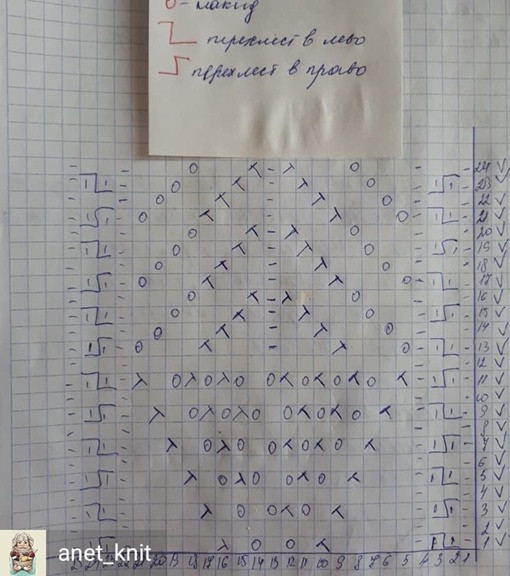 О - накид
перехлест в лево
перехлест в право
24 V
23 V
22 V
21 V
20 V
19 V
18 V
17 V
16 V
15 V
14 V
13 V
12 V
11 V
10 V
9 V
8 V
7 V
6 V
5 V
4 V
3 V
2 V
1 V
22 21 20 19 18 17 16 15 14 13 12 11 10 9 8 7 6 5 4 3 2 1
anet_knit